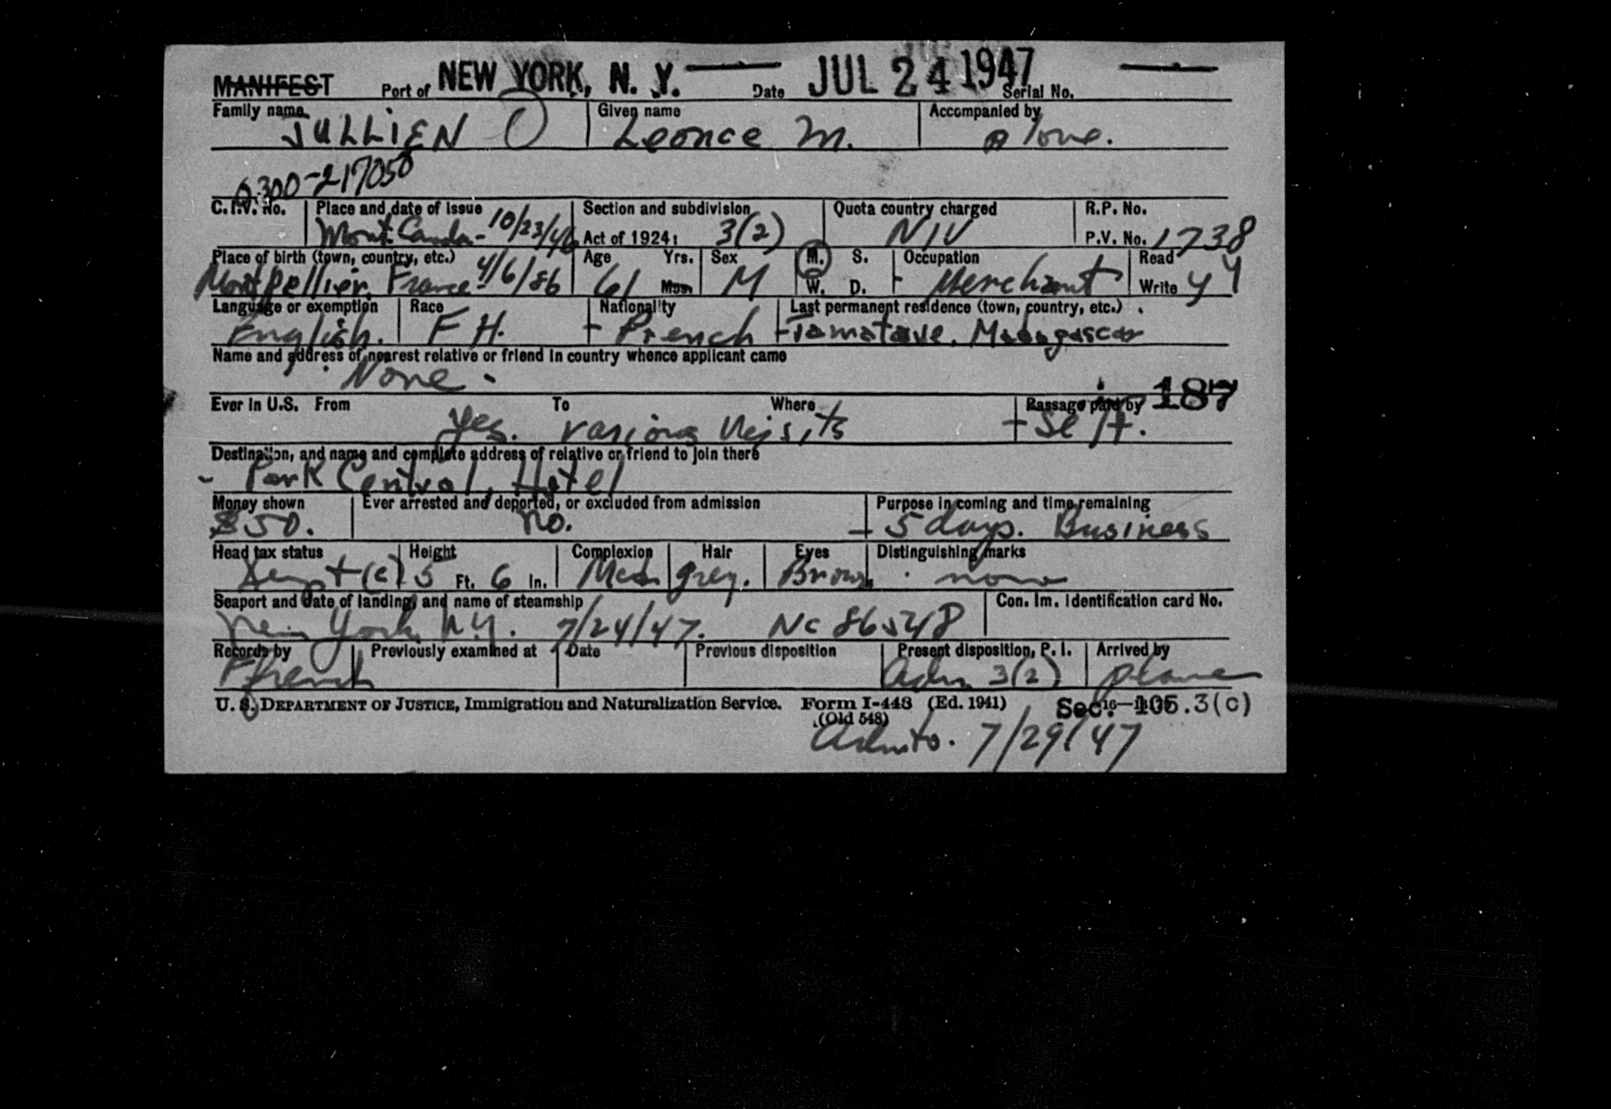 MANIFEST Port of NEW YORK, N. Y. Date JUL 24 1947 Serial No.
Family name Given name Accompanied by
JULLIEN Leonce M. alone.
0300-217050
C.I.V. No. Place and date of issue Section and subdivision Quota country charged R.P. No.
10/23/46 Act of 1924: 3(2) NIV P.V. No. 1738
Place of birth (town, country, etc.) Age Yrs. Sex M. S. Occupation Read y
Montpellier, France 4/6/86 61 Mos. M W. D. Merchant Write y
Language or exemption Race Nationality Last permanent residence (town, country, etc.)
English. FH. French Tamatave, Madagascar
Name and address of nearest relative or friend in country whence applicant came
None -
187
Ever in U.S. From To Where Passage paid by
Yes. various visits Self.
Destination, and name and complete address of relative or friend to join there
- Park Central Hotel
Money shown Ever arrested and deported, or excluded from admission Purpose in coming and time remaining
$50. no. 5 days. Business
Head tax status Height Complexion Hair Eyes Distinguishing marks
(c) 5 Ft. 6 In. Med grey. Brown none
Seaport and date of landing, and name of steamship Con. Im. Identification card No.
New York, N.Y. 7/24/47. NC 86548
Records by Previously examined at Date Previous disposition Present disposition, P. I. Arrived by
French Adm. 3(2) plane
U. S. DEPARTMENT OF JUSTICE, Immigration and Naturalization Service. Form I-448 (Ed. 1941) Sec. 105.3(c)
(Old 548)
7/29/47